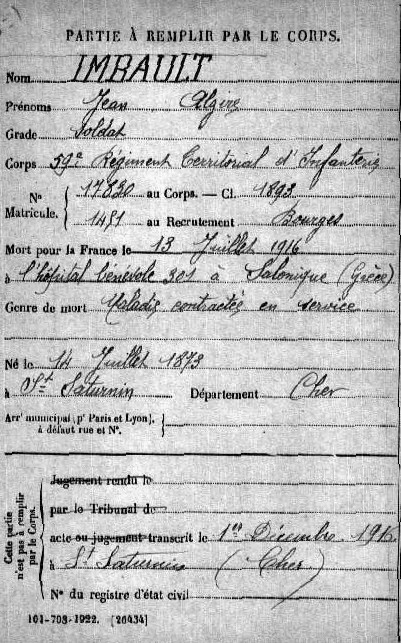 PARTIE À REMPLIR PAR LE CORPS.
Nom IMBAULT
Prénoms Jean Algire
Grade Soldat
Corps 59e Régiment Territorial d'Infanterie
N° Matricule. 17830 au Corps. — Cl. 1893
1481 au Recrutement Bourges
Mort pour la France le 13 Juillet 1916
à l'hôpital bénévole 301 à Salonique (Grèce)
Genre de mort Maladie contractée en service
Né le 14 Juillet 1873
à St Saturnin Département Cher
Arrt municipal (pr Paris et Lyon), à défaut rue et N°.
Cette partie n'est pas à remplir par le Corps.
Jugement rendu le
par le Tribunal de
acte ou jugement transcrit le 1er Décembre 1916
à St Saturnin (Cher)
N° du registre d'état civil
101-708-1922. [26434]